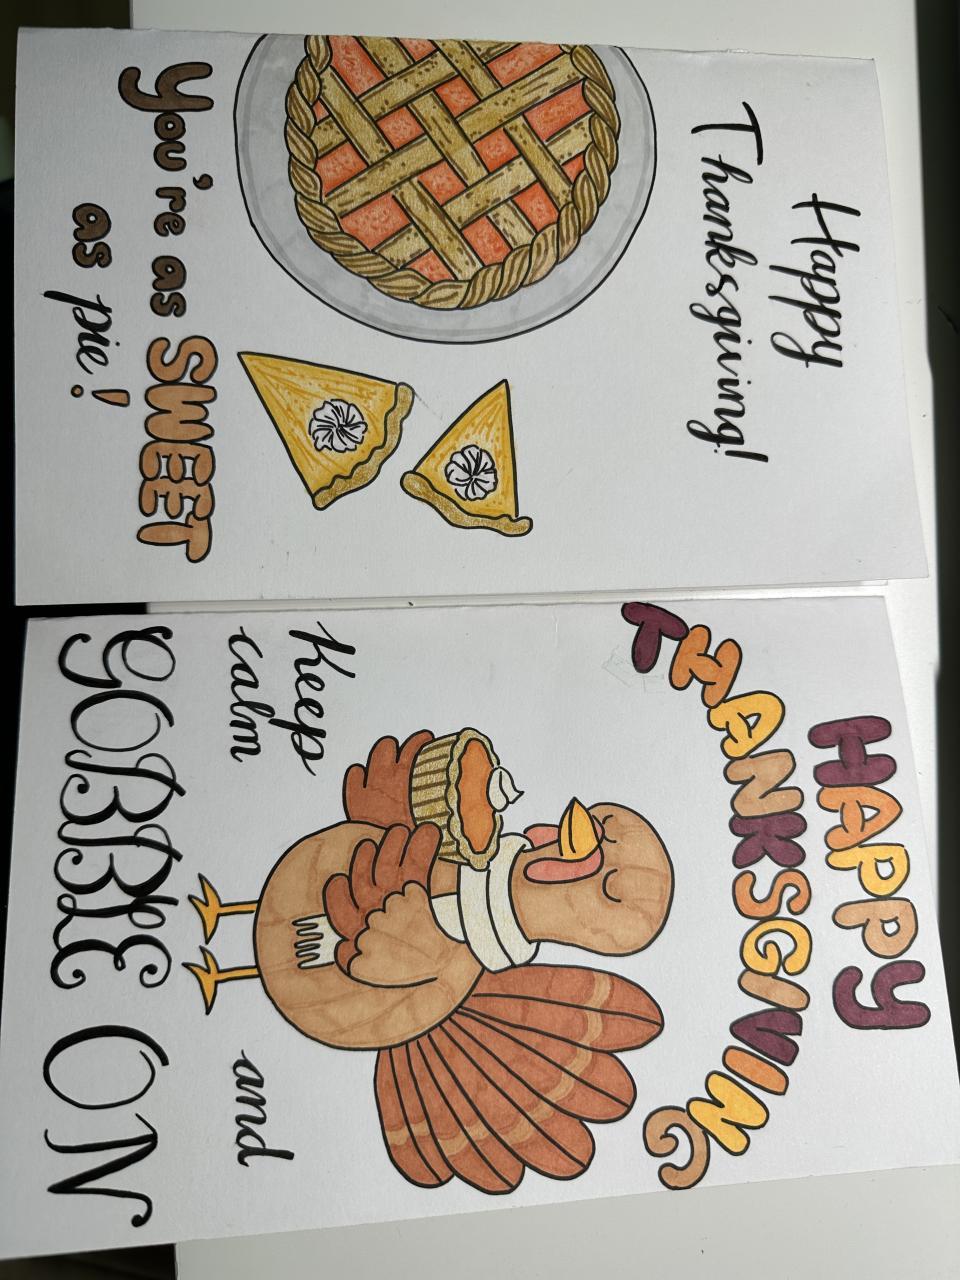 Happy
Thanksgiving!
You're as SWEET
as pie!
HAPPY
THANKSGIVING
Keep
calm and
GOBBLE ON